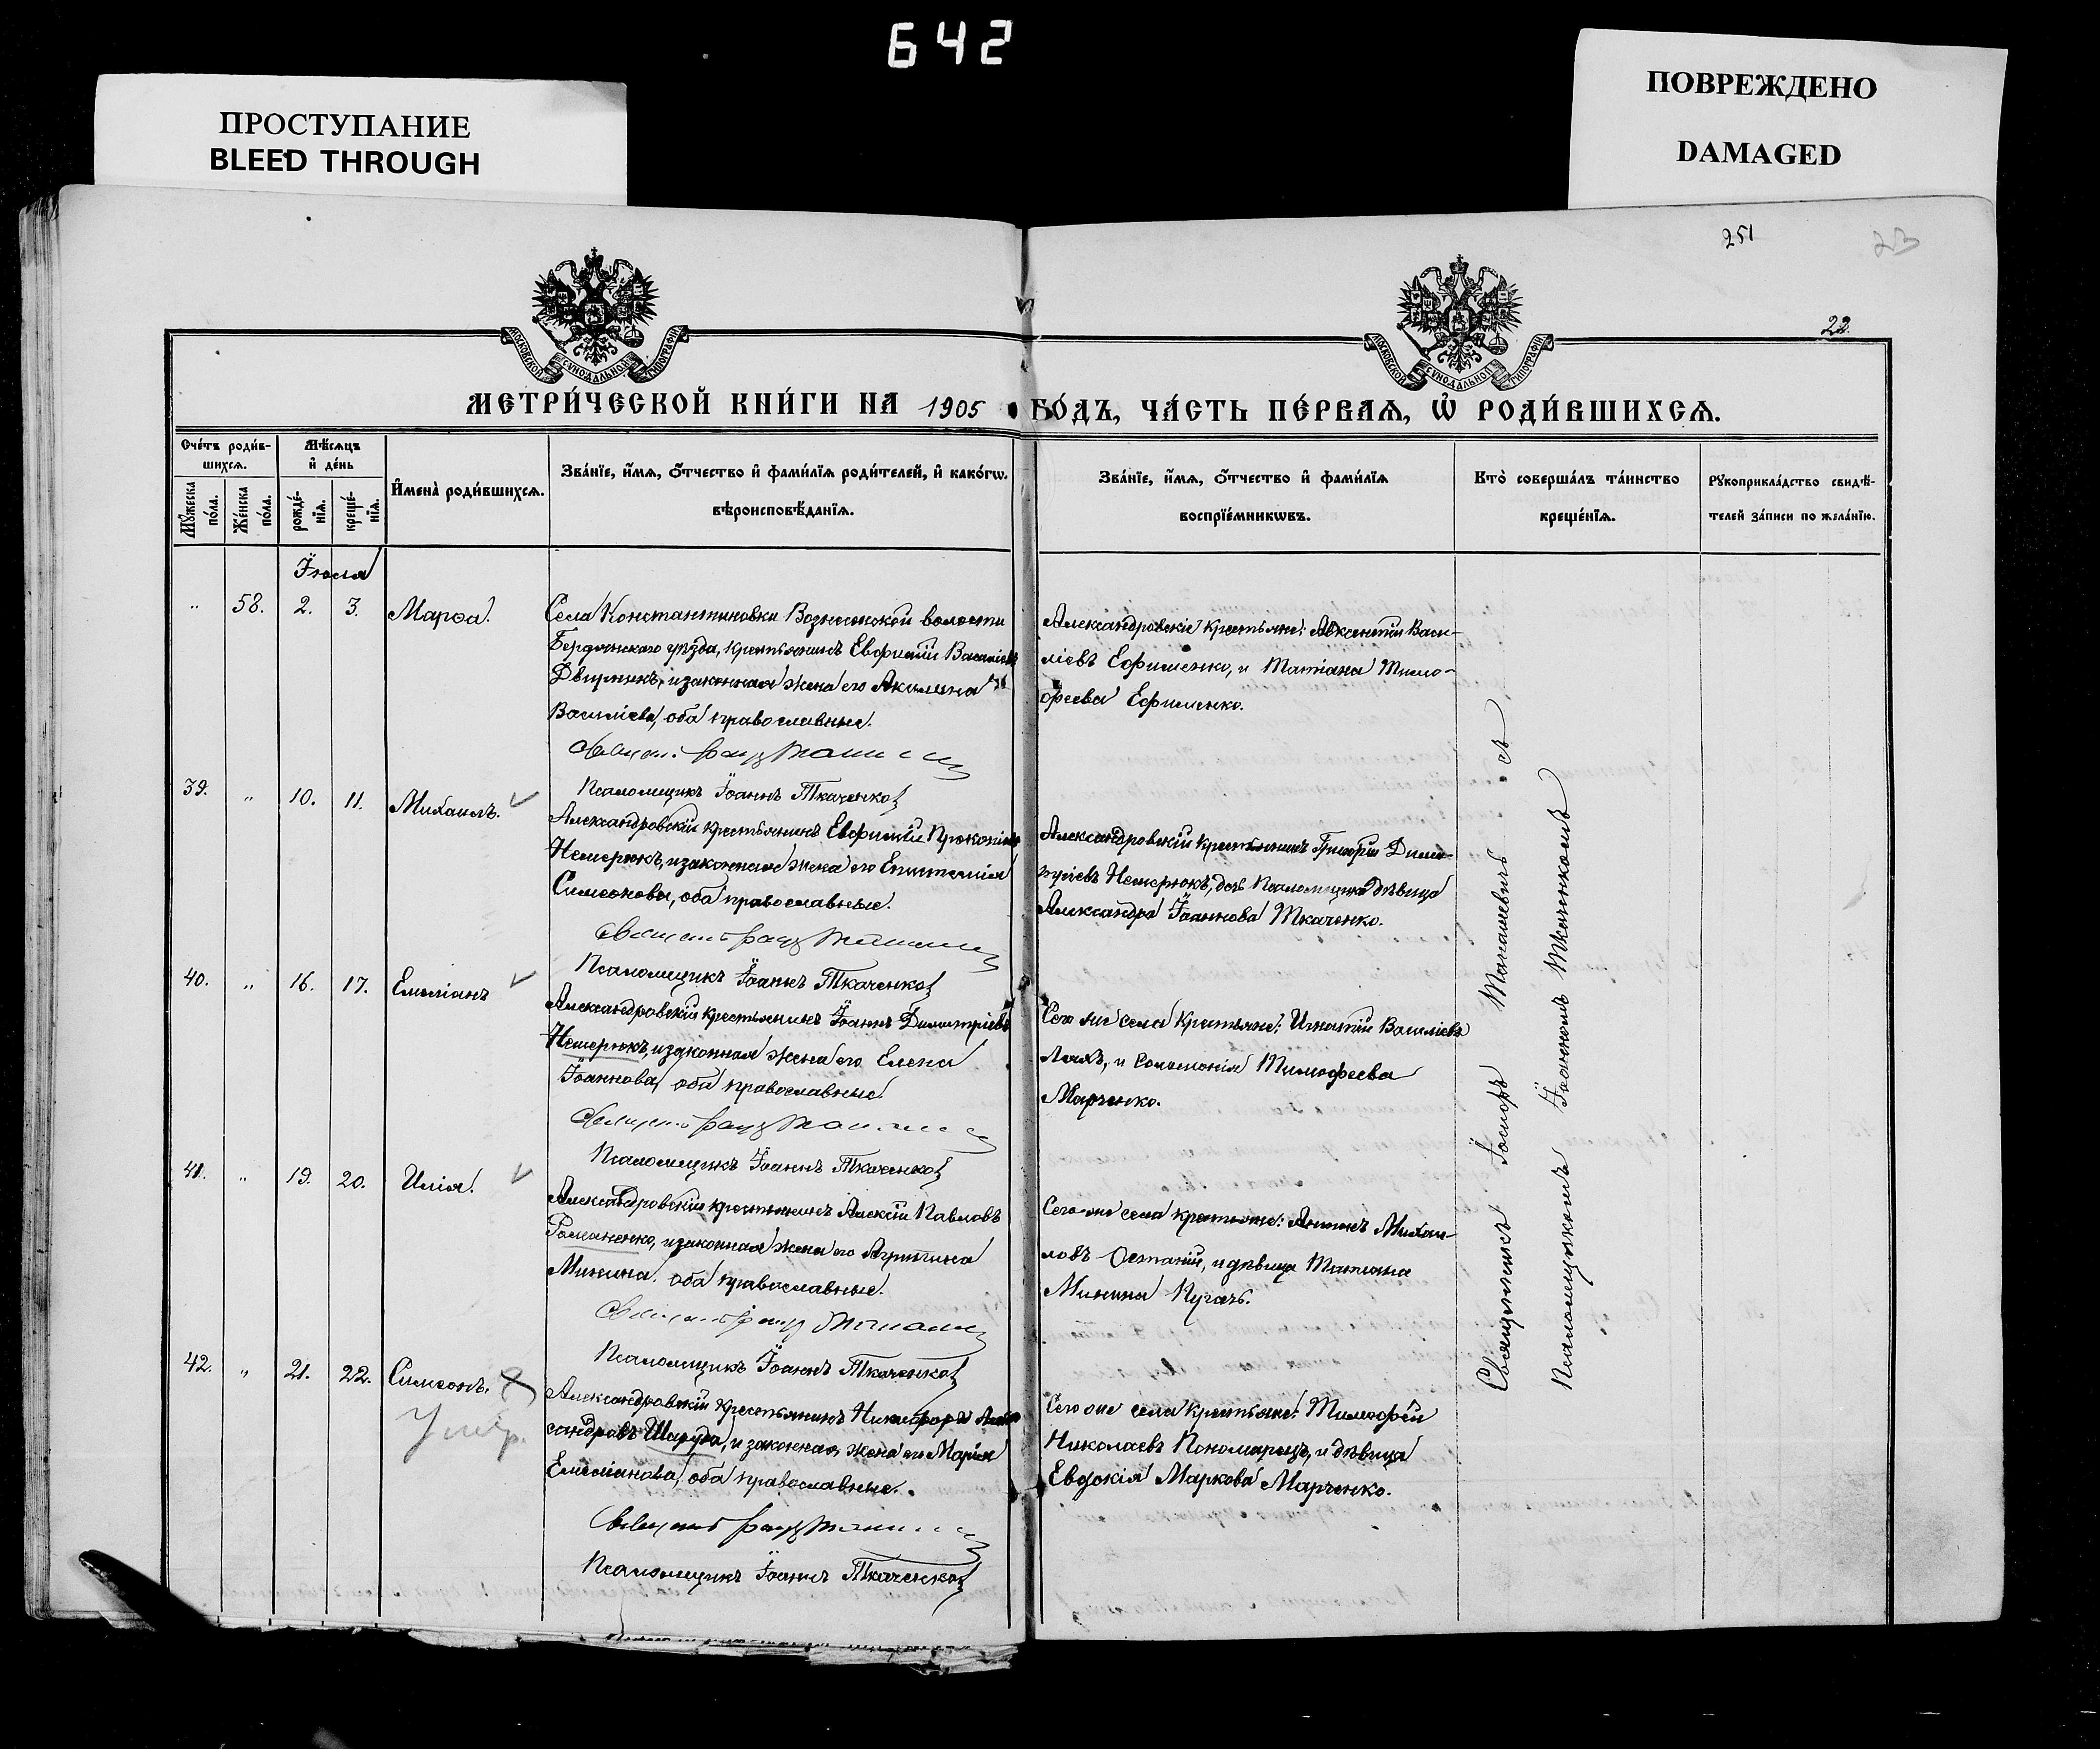 642
ПРОСТУПАНИЕ
BLEED THROUGH
ПОВРЕЖДЕНО
DAMAGED
251
23
22.
МОСКОВСКОЙ СѴНОДАЛЬНОЙ ТИПОГРАФІИ
МОСКОВСКОЙ СѴНОДАЛЬНОЙ ТИПОГРАФІИ
МЕТРИ́ЧЕСКОЙ КНИ́ГИ НА 1905 ГО́ДЪ, ЧА́СТЬ ПЕ́РВАѦ, Ѡ҆ РОДИ́ВШИХСѦ.
Сче́тъ роди́в-
шихсѧ.
Мꙋ́жеска по́ла.
Же́нска по́ла.
Мѣ́сѧцъ
и҆ де́нь
рожде́-
нїѧ.
креще́-
нїѧ.
И҆мена̀ роди́вшихсѧ.
Зва́нїе, и҆́мѧ, ѻ҆́тчество и҆ фами́лїѧ роди́телей, и҆ како́гѡ
вѣроисповѣ́данїѧ.
Зва́нїе, и҆́мѧ, ѻ҆́тчество и҆ фами́лїѧ
воспрїе́мникѡвъ.
Кто̀ соверша́лъ та́инство
креще́нїѧ.
Рꙋкоприкла́дство свидѣ́-
телей за́писи по жела́нїю.
Іюля
" 58. 2. 3. Марѳа.
Села Константиновки Вознесенской волости
Бердянскаго уѣзда, крестьянинъ Евфимій Василіевъ
Двирникъ, и законная жена его Акилина
Василіева, оба православные.
Псаломщикъ Іоаннъ Ткаченко
Александровскіе крестьяне: Авксентій Васи-
ліевъ Ефименко, и Татіана Тимо-
ѳеева Ефименко.
39. " 10. 11. Михаилъ.
Александровскій крестьянинъ Евфимій Прокопіевъ
Немерюкъ, и законная жена его Епистимія
Симеонова, оба православные.
Псаломщикъ Іоаннъ Ткаченко
Александровскій крестьянинъ Григорій Дими-
тріевъ Немерюкъ, дочь Псаломщика дѣвица
Александра Іоаннова Ткаченко.
40. " 16. 17. Емиліанъ
Александровскій крестьянинъ Іоаннъ Димитріевъ
Немерюкъ, и законная жена его Елена
Іоаннова, оба православные.
Псаломщикъ Іоаннъ Ткаченко
Сего же села крестьяне: Игнатій Василіевъ
Ляхъ, и Соломонія Тимофеева
Марченко.
41. " 19. 20. Илія.
Александровскій крестьянинъ Алексій Павловъ
Романенко, и законная жена его Агрипина
Минина, оба православные.
Псаломщикъ Іоаннъ Ткаченко
Сего же села крестьяне: Михаи-
ловъ и дѣвица Татіана
Минина Пугачь.
42. " 21. 22. Симеонъ.
Умер.
Александровскій крестьянинъ Никифоръ Алек-
сандровъ Шаруда, и законная жена его Марія
Емиліанова, оба православные.
Псаломщикъ Іоаннъ Ткаченко
Сего же села крестьяне: Тимофей
Николаевъ Пономарець, и дѣвица
Евдокія Маркова Марченко.
Священникъ Іосифъ съ
Псаломщикомъ Іоанномъ Ткаченкомъ